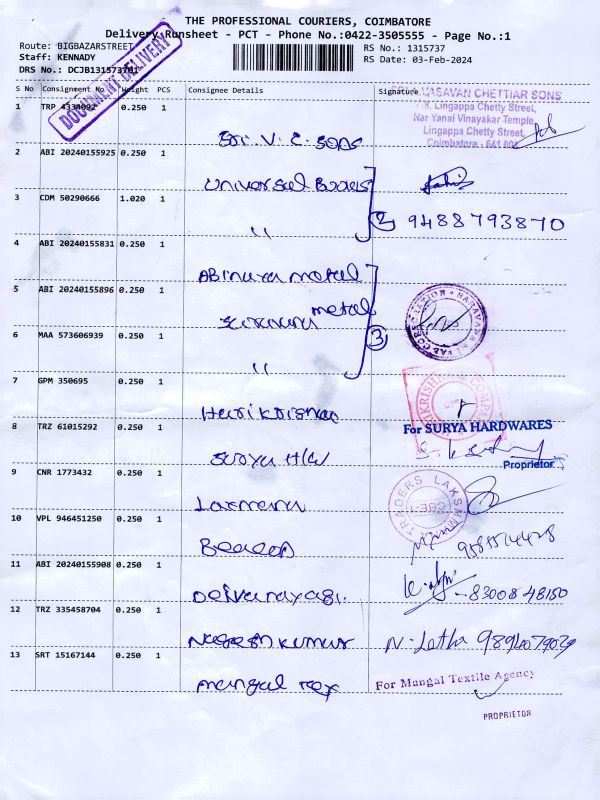 THE PROFESSIONAL COURIERS, COIMBATORE
Delivery Runsheet - PCT - Phone No.:0422-3505555 - Page No.:1
Route: BIGBAZARSTREET
RS No.: 1315737
Staff: KENNADY
RS Date: 03-Feb-2024
DRS No.: DCJB131573701
DOCUMENT DELIVERY
S No Consignment No Weight PCS Consignee Details Signature
1 TRP 4334092 0.250 1 Sri. V. C. Sons
VASAVAN CHETTIAR SONS
Lingappa Chetty Street,
Near Yanai Vinayakar Temple,
Lingappa Chetty Street,
Coimbatore - 641 001
2 ABI 20240155925 0.250 1 Universal Books
3 CDM 50290666 1.020 1 " 2 9488793870
4 ABI 20240155831 0.250 1 Abinaya metal
5 ABI 20240155896 0.250 1 metal
6 MAA 573606939 0.250 1 " 3
7 GPM 350695 0.250 1 Harikrishna
8 TRZ 61015292 0.250 1 Surya H/W
For SURYA HARDWARES
Proprietor
9 CNR 1773432 0.250 1 Laxmana
TRADERS LAKSHMANA
CBE-1
10 VPL 946451250 0.250 1 Beacon
11 ABI 20240155908 0.250 1 Deivanayagi. - 8300848150
12 TRZ 335458704 0.250 1 Nageshkumar N. Latha 9894079039
13 SRT 15167144 0.250 1 Mangal Tex
For Mangal Textile Agency
PROPRIETOR